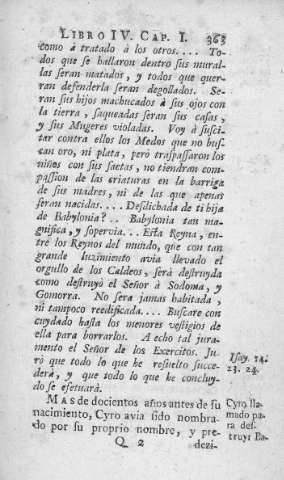 LIBRO IV. CAP. I. 363
como à tratado à los otros.... To-
dos que se hallaron dentro sus mural-
las seran matados, y todos que quer-
ran defenderla seran degollados. Se-
ran sus hijos machucados à sus ojos con
la tierra, saqueadas seran sus casas,
y sus Mugeres violadas. Voy à susci-
tar contra ellos los Medos que no bus-
can oro, ni plata, però traspassaron los
niños con sus saetas, no tiendran com-
passion de las criaturas en la barriga
de sus madres, ni de las que apenas
seran nacidas.... Desdichada de ti hija
de Babylonia?.. Babylonia tan ma-
gnifica, y sopervia... Esta Reyna, en-
tre los Reynos del mundo, que con tan
grande luzimiento avia llevado el
orgullo de los Caldeos, serà destruyda
como destruyò el Señor à Sodoma, y
Gomorra. No sera jamas habitada,
ni tampoco reedificada.... Buscare con
cuydado hasta los menores vestigios de
ella para borrarlos. A echo tal jura-
mento el Señor de los Exercitos. Ju-
rò que todo lo que he resuelto succe-
derà, y que todo lo que he concluy-
do se efetuarà.
Isay. 14.
23. 24.
MAS de docientos años antes de su
nacimiento, Cyro avia sido nombra-
do por su proprio nombre, y pre-
Cyro lla-
mado pa
ra des-
truyr Ba-
Q 2 dezi-